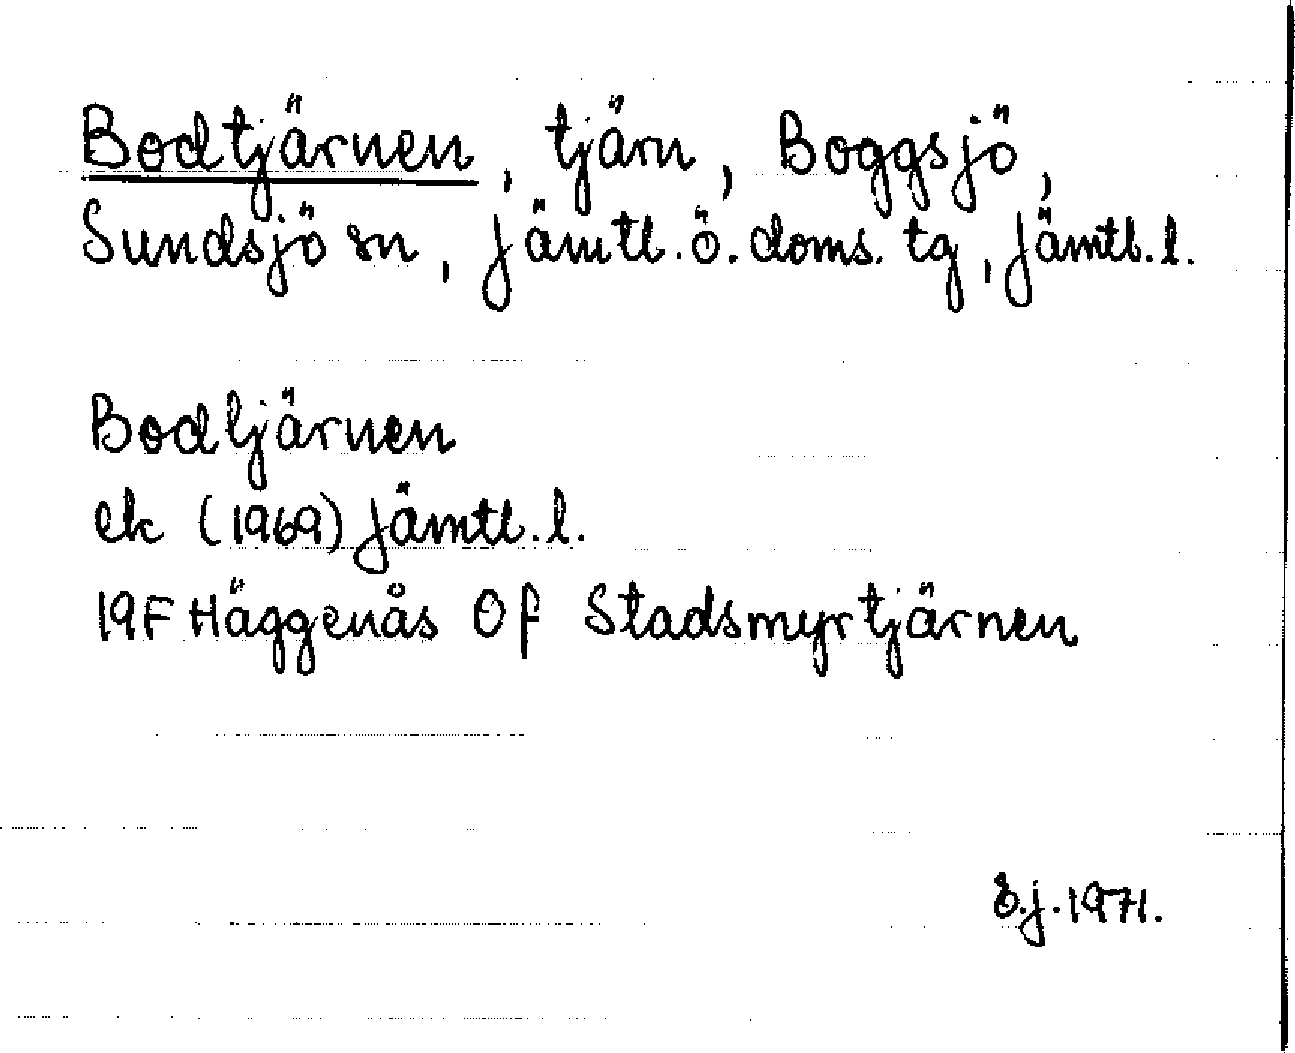 Bodtjärnen, tjärn, Boggsjö,
Sundsjö sn, Jämtl. ö. doms. tg, Jämtl. l.
Bodtjärnen
ek (1969) Jämtl. l.
19F Häggenås 0f Stadsmyrtjärnen
E.J. 1971.